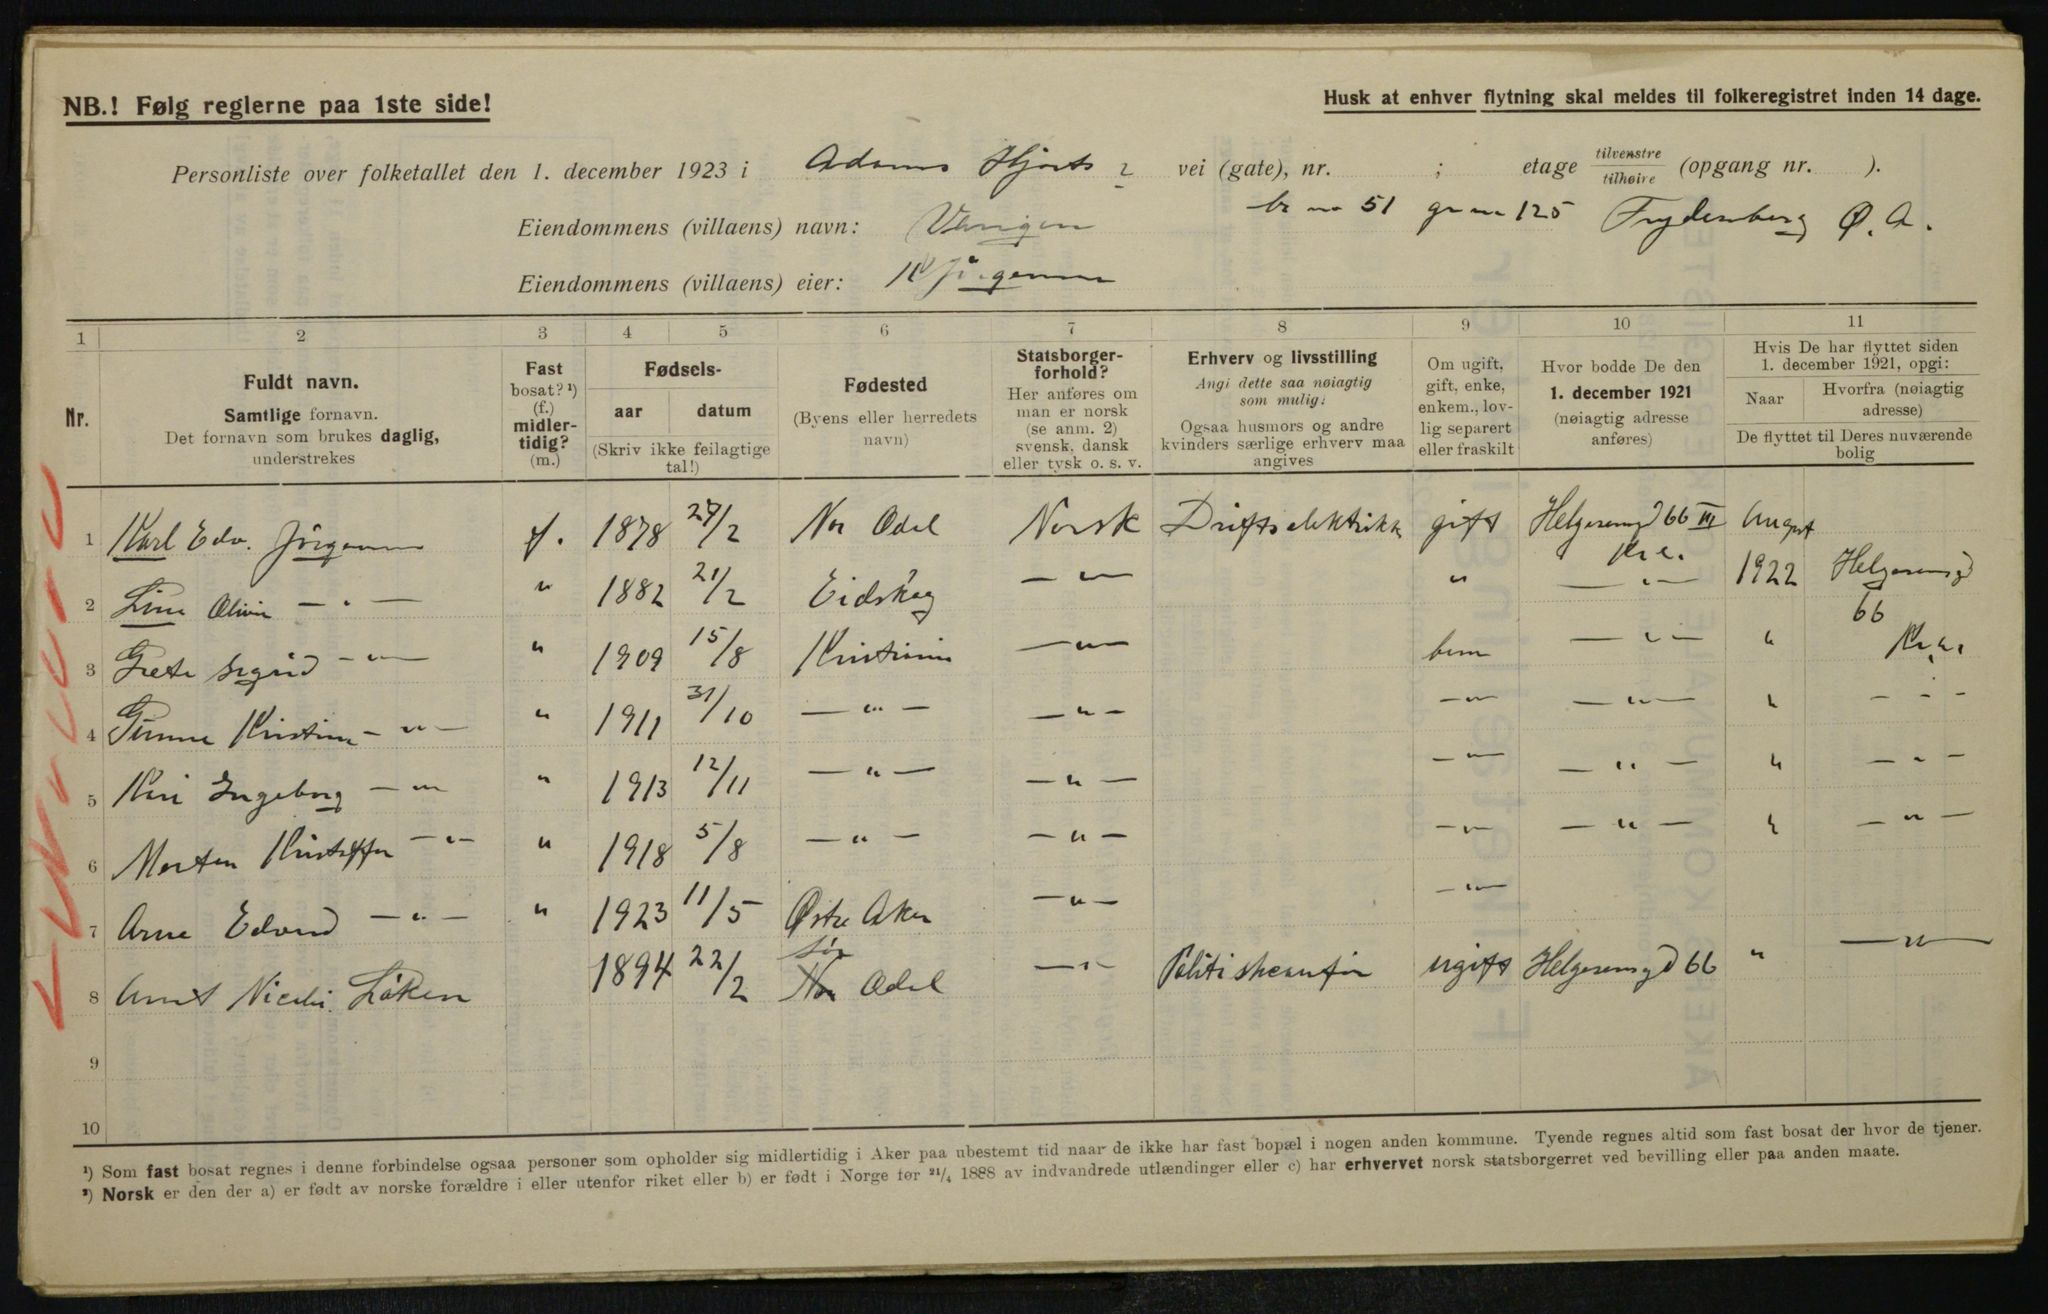 NB.! Følg reglerne paa 1ste side!
Husk at enhver flytning skal meldes til folkeregistret inden 14 dage.
Personliste over folketallet den 1. december 1923 i Adams Hjorts vei (gate), nr. ; etage tilvenstre / tilhøire (opgang nr. ).
Eiendommens (villaens) navn:
br no 51 gr no 125 Frydenberg Ø. A.
Eiendommens (villaens) eier:
1 2 3 4 5 6 7 8 9 10 11
Nr.
Fuldt navn.
Samtlige fornavn.
Det fornavn som brukes daglig, understrekes
Fast bosat? ¹) (f.) midlertidig? (m.)
Fødsels-
aar datum
(Skriv ikke feilagtige tal!)
Fødested
(Byens eller herredets navn)
Statsborgerforhold?
Her anføres om man er norsk (se anm. 2) svensk, dansk eller tysk o. s. v.
Erhverv og livsstilling
Angi dette saa nøiagtig som mulig:
Ogsaa husmors og andre kvinders særlige erhverv maa angives
Om ugift, gift, enke, enkem., lovlig separert eller fraskilt
Hvor bodde De den 1. december 1921
(nøiagtig adresse anføres)
Hvis De har flyttet siden 1. december 1921, opgi:
Naar
Hvorfra (nøiagtig adresse)
De flyttet til Deres nuværende bolig
1 Karl Edv. Jørgensen f. 1878 /2 Nor Odal Norsk Driftselektrikk gift Helgesensgd 66 III Kr.a. August
2 Lina Olivia — " — " 1882 21/2 Eidskog — " — " — " — 1922 Helgesensgd 66 Kr.a.
3 Grete Sigrid — " — " 1909 15/8 Kristiania — " — barn — " — "
4 Kristine — " — " 1911 31/10 — " — — " — — " — — " — " — " —
5 Kari Ingeborg — " — " 1913 12/11 — " — — " — — " — — " — " — " —
6 Morten Kristoffer — " — " 1918 5/8 — " — — " — — " — — " — " — " —
7 Arne Edvard — " — " 1923 11/5 Østre Aker — " — — " —
8 Arnt Nicolai Løken 1894 22/2 Sør Nor Odal — " — Politi ugift Helgesensgd 66 " — " —
9
10
¹) Som fast bosat regnes i denne forbindelse ogsaa personer som opholder sig midlertidig i Aker paa ubestemt tid naar de ikke har fast bopæl i nogen anden kommune. Tyende regnes altid som fast bosat der hvor de tjener.
²) Norsk er den der a) er født av norske forældre i eller utenfor riket eller b) er født i Norge før 21/4 1888 av indvandrede utlændinger eller c) har erhvervet norsk statsborgerret ved bevilling eller paa anden maate.